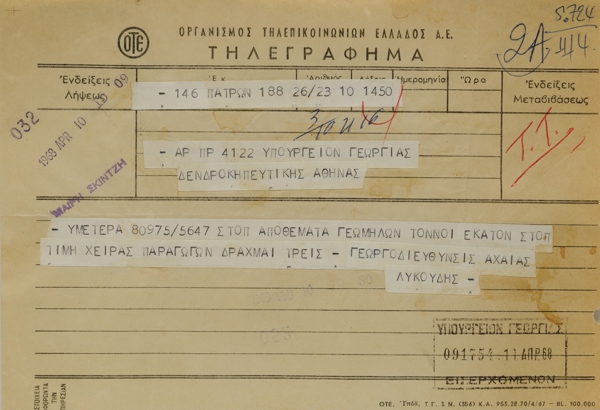 S.724
2A 4/4
ΟΤΕ
ΟΡΓΑΝΙΣΜΟΣ ΤΗΛΕΠΙΚΟΙΝΩΝΙΩΝ ΕΛΛΑΔΟΣ Α.Ε.
ΤΗΛΕΓΡΑΦΗΜΑ
Ἐνδείξεις
Λήψεως
Ἐκ
Ἀριθμὸς
Λέξεις
Ἡμερομηνία
Ὥρα
Ἐνδείξεις
Μεταβιβάσεως
032
1968 APR 10 09
ΜΑΙΡΗ ΣΚΙΝΤΖΗ
- 146 ΠΑΤΡΩΝ 188 26/23 10 1450
Τ.Τ.
- ΑΡ ΠΡ 4122 ΥΠΟΥΡΓΕΙΟΝ ΓΕΩΡΓΙΑΣ
ΔΕΝΔΡΟΚΗΠΕΥΤΙΚΗΣ ΑΘΗΝΑΣ
- ΥΜΕΤΕΡΑ 80975/5647 ΣΤΟΠ ΑΠΟΘΕΜΑΤΑ ΓΕΩΜΗΛΩΝ ΤΟΝΝΟΙ ΕΚΑΤΟΝ ΣΤΟΠ
ΤΙΜΗ ΧΕΙΡΑΣ ΠΑΡΑΓΩΓΩΝ ΔΡΑΧΜΑΙ ΤΡΕΙΣ - ΓΕΩΡΓΟΔΙΕΥΘΥΝΣΙΣ ΑΧΑΙΑΣ
ΛΥΚΟΥΔΗΣ -
ΥΠΟΥΡΓΕΙΟΝ ΓΕΩΡΓΙΑΣ
091754 11 ΑΠΡ. 68
ΕΙΣΕΡΧΟΜΕΝΟΝ
ΣΤΟΙΧΕΙΑ
ΤΗΝ
ΥΠΗΡΕΣΙΑΝ
ΟΤΕ, Ὑπόδ. Τ.Γ. 3 Ν. (356) Κ.Α. 953.28.70/4/67 - BL. 100.000